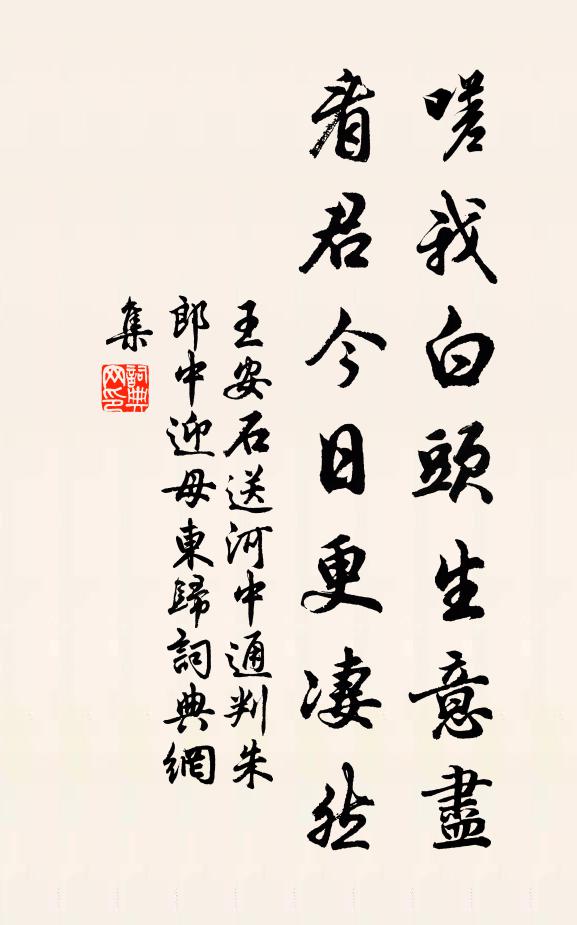 嗟我白頭生意盡
看君今日更凄然
王安石送河中通判朱
郎中迎母東歸詞典網
集
詞典网印